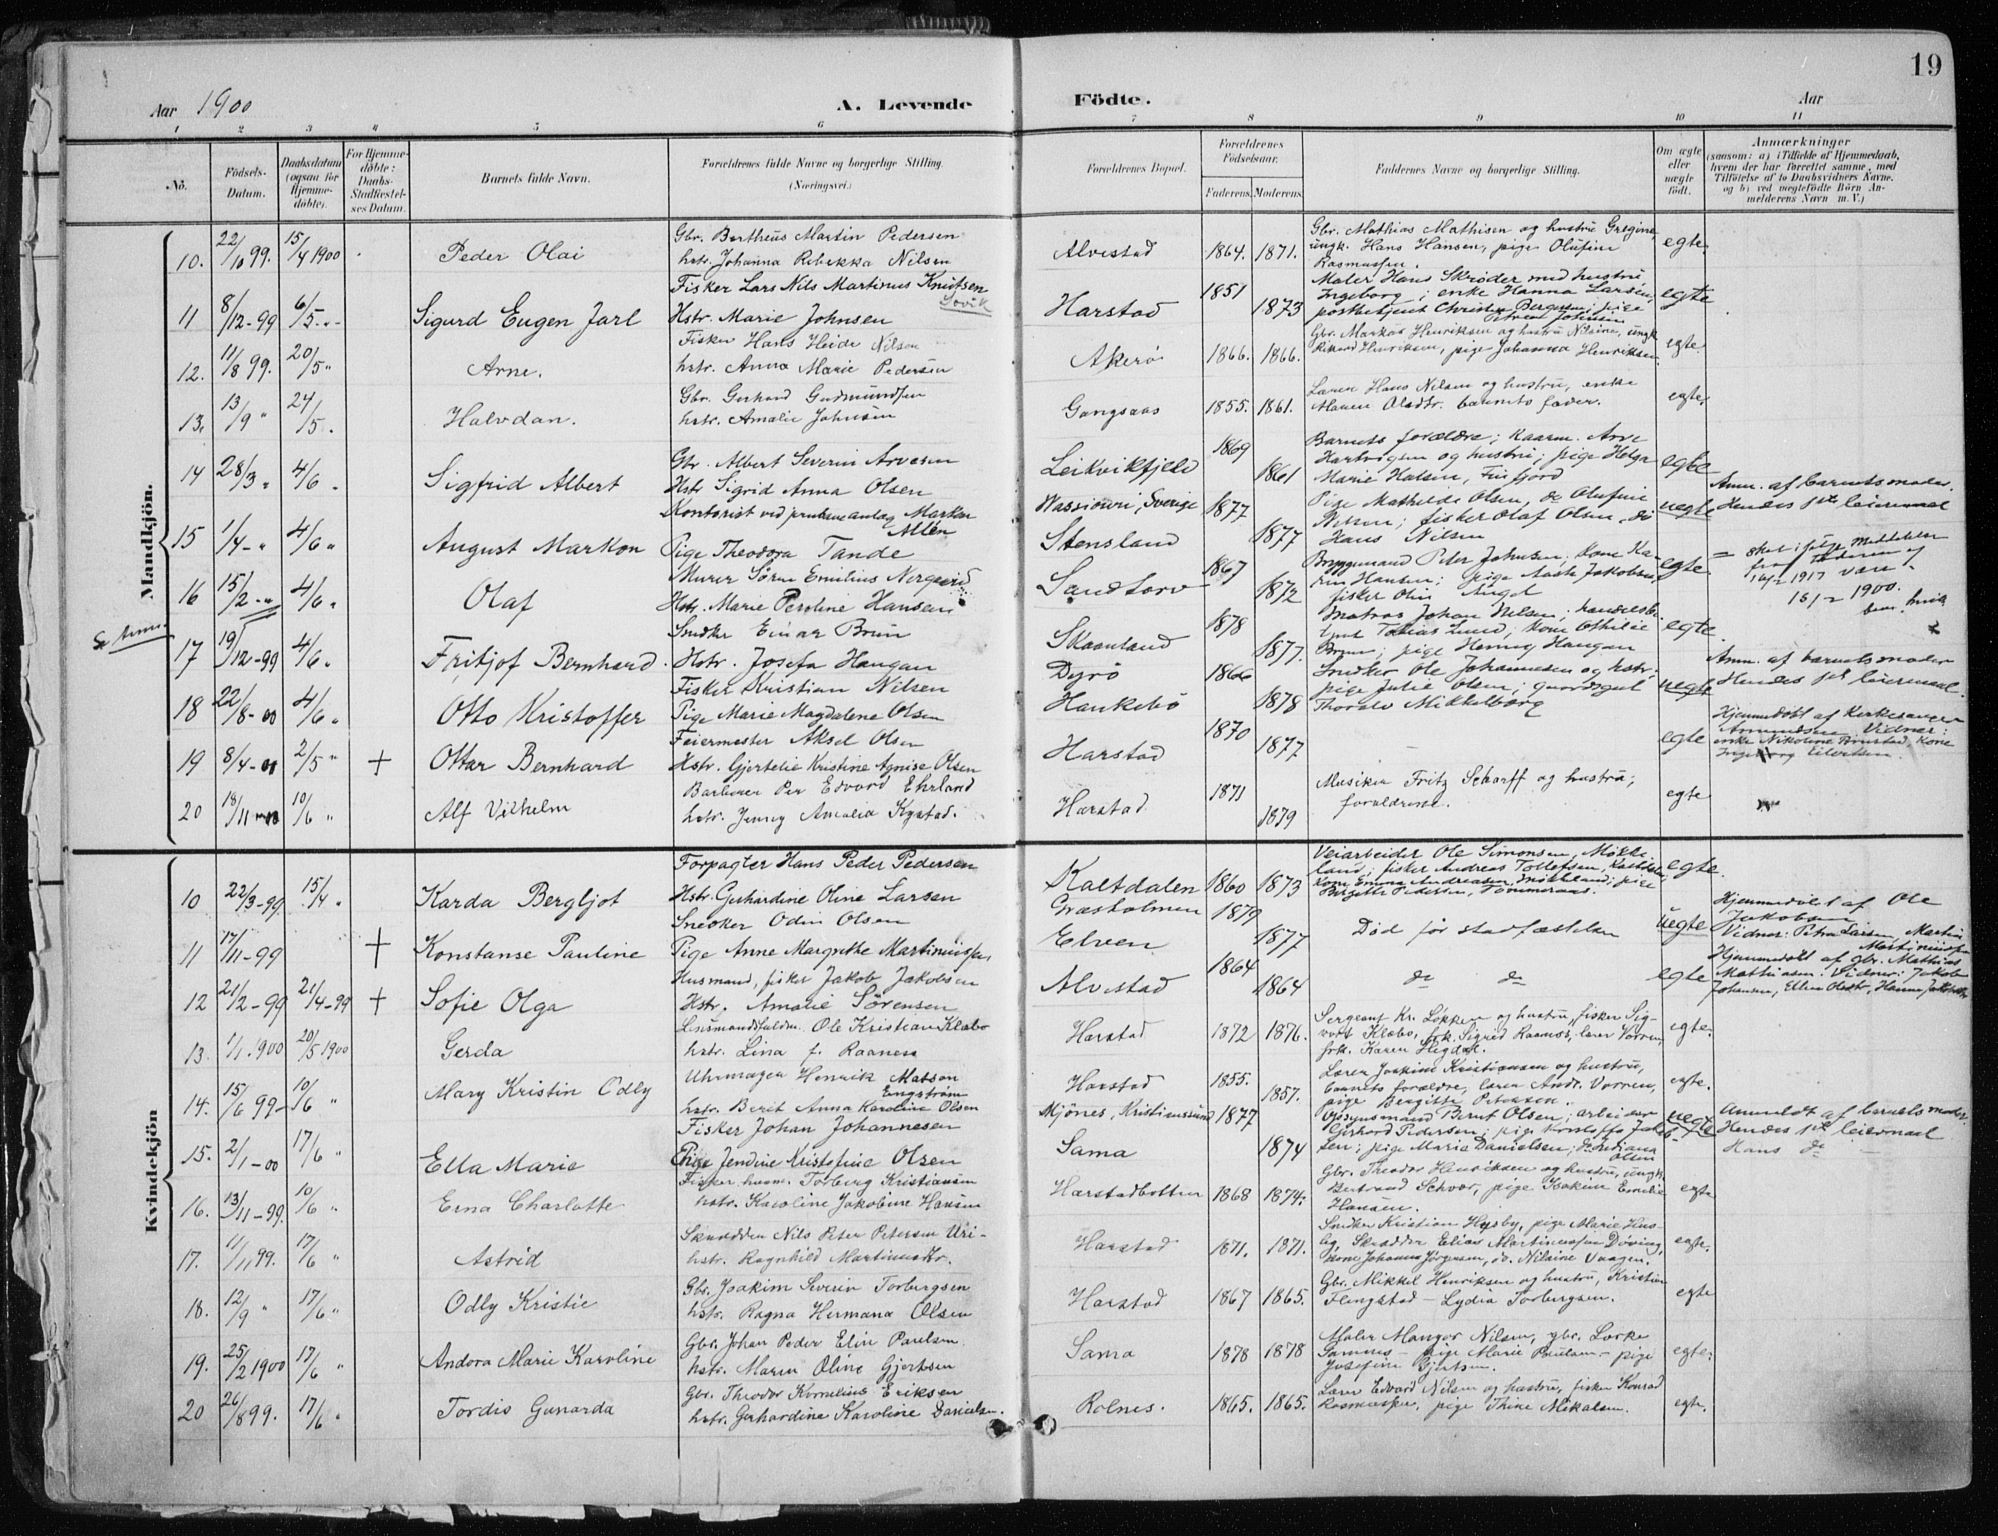 19
Aar 1900
A. Levende Födte.
Aar
1 2 3 4 5 6 7 8 9 10 11
No.
Födsels-Datum.
Daabsdatum (ogsaa for Hjemmedöbte).
For Hjemmedöbte: Daabs-Stadfæstelses Datum.
Barnets fulde Navn.
Forældrenes fulde Navne og borgerlige Stilling. (Næringsvei.)
Forældrenes Bopæl.
Forældrenes Födselsaar.
Faderens. Moderens.
Faddernes Navne og borgerlige Stilling.
Om ægte eller uægte födt.
Anmærkninger
(saasom: a) i Tilfælde af Hjemmedaab, hvem der har forrettet samme, med Tilföielse af to Daabsvidners Navne, og b) ved uægtefödte Börn Anmelderens Navn m. V.)
Mandkjön.
10. 22/10 99. 15/4 1900 Peder Olai
Gbr. Bertheus Martin Pedersen
hstr. Johanna Rebekka Nilsen
Alvestad 1864. 1871.
Gbr. Mathias Mathisen og hustru Gregine
ungk. Hans Hansen, pige Olufine
Rasmussen.
egte.
11 8/12-99 6/5 Sigurd Eugen Jarl
Fisker Lars Nils Martinus Knutsen
Hstr. Marie Johnsen
Harstad 1851 1873
Maler Hans Skrøder med hustru
Ingeborg; enke Hanna Larsen,
egte
12. 11/8 99. 20/5 " Arne.
Fisker Hans Heide Nilsen
hstr. Anna Marie Pedersen
Akerö 1866. 1866.
Gbr. Markus Henriksen og hustru Nilsine, ungk.
Rikard Henriksen, pige Johanna Henriksen.
egte.
13. 13/9 " 24/5. Halvdan.
Gbr. Gerhard Gudmundsen
hstr. Amalie Johnsen
Gangsaas 1855. 1861.
Lærer Hans Nilsen og hustru, enke
Maren Olsdtr. barnets fader.
egte.
14 28/3 " 4/6 " Sigfrid Albert
Gbr. Albert Severin Arvesen
Hstr Sigrid Anna Olsen
Leikvikfjeld 1869 1861
Barnets forældre; Kaarm. Arve
Hartvigsen og hustru; pige Helga
Marie Halsen, Finfjord
egte
15 1/4 " 4/6 " August Markon
Pige Theodora Tande
Stensland 1877 1877
Pige Mathilde Olsen, do Olufine
Nilsen; fisker Olaf Olsen, do
Hans Nilsen
uegte
Anm. af barnets moder.
Hendes 1ste leiermaal
16 15/2 " 4/6 " Olaf
Murer Sören Emilius Nergaard
Hstr. Marie Peroline Hansen
Sandtorv 1867 1872
Bryggemand Peter Johnsen, kone Karin Hansen; pige Aasta Jakobsen
fisker Olin Angel
egte
15/2 1900.
17 19/12-99 4/6 " Fritjof Bernhard.
Sndker Einar Brun
Hstr. Josefa Haugan
Skaanland 1878 1877.
Matros Johan Nilsen, handelsbetjent Tobias Lund, kone Othilie
Brun; pige Henny Haugan
egte.
18 22/8-00 4/6 " Otto Kristoffer
Fisker Kristian Nilsen
Pige Marie Magdalene Olsen
Dyrö
Haukebö 1866 1878
Sndker Ole Johannesen og hstr;
pige Julie Olsen; gaardsgut
Thoralv Mikkelborg
uegte
Anm. af barnets moder
Hendes 1ste leiermaal.
19 8/4-00 2/5 " + Ottar Bernhard
Feiermester Aksel Olsen
Hstr. Gjertelie Kristine Agnise Olsen
Harstad 1870 1877
egte
Hjemmedöbt af Kirkesanger
Amundsen Vidner:
enke Nikoline Anstad, kone
Ingeborg Eilertsen.
20 18/11 10/6 " Alf Vilhelm
Barberer Per Edvard Ehrland
hstr. Jenny Amalia Kystad.
Harstad 1871 1879
Musiker Fritz Scharff og hustru;
forældrene.
egte
Kvindekjön
10 22/3-99 15/4 " Karda Bergljot
Forpagter Hans Peder Pedersen
Hstr. Gerhardine Oline Larsen
Kaltdalen 1860 1873
Veiarbeider Ole Simonsen, Møkkeland, fisker Andreas Tollefsen,
kone Emma Andreasen, Møkkeland; pige
Birgitte Pedersen, Tømmeraas.
egte.
11 17/11-99 + Konstanse Pauline
Snedker Odin Olsen
Pige Anne Margrethe Martinussen
Græsholmen
Elven 1879 1877
Död för stadfæstelsen
uegte
Hjemmedöbt af Ole
Jakobsen
Vidner: Petra Larsen, Martin
Martinussen
12 21/2-99 21/4-99 + Sofie Olga
Husmand, fisker Jakob Jakobsen
Hstr. Amalie Sörensen
Alvestad 1864 1864
do do
egte
Hjemmedöbt af gbr. Mathias
Mathiasen. Vidner: Jakob
Johansen, Ellen Olsdtr, Hanna
13. 1/1 1900 20/5 1900 Gerda
Lensmandsfuldm. Ole Kristian Klæbo
hstr. Lina f. Raanes
Harstad 1872 1876.
Sergeant Kr. Løkken og hustru, fisker Sigvart Klæbo, frk. Sigrid Raanes, lærer Vorren,
frk. Karen Hegdal.
egte.
14. 15/6 99 10/6 " Mary Kristin Odly
Uhrmager Henrik Matson
Engström
hstr. Berit Anna Karoline Olsen
Harstad 1855. 1857.
Lærer Joakim Kristiansen og hustru,
barnets forældre, lærer Andr. Vorren,
pige Birgitte Petersen.
egte.
15. 2/1-00 17/6 " Ella Marie
Fisker Johan Johannesen
Pige Jendine Kristofine Olsen
Mjönes, Kristianssund
Sama 1877 1874
Opsynsmand Bernt Olsen; arbeider
Gerhard Pedersen; pige
pige Marie Danielsen,
Olsen
uegte
Anmeldt af barnets moder.
Hendes 1ste leiermaal
Hans do
16. 13/11-99. 10/6 " Erna Charlotte
Fisker, husm. Torberg Kristiansen
hstr. Karoline Jakobine Hansen
Harstadbotten 1868 1874.
Gbr. Theodor Henriksen og hustru, ungk.
Bertrand Schvor, pige Joakine Emelie
Hansen.
egte
17. 11/11 99. 17/6 " Astrid
Skrædder Nils Peter Petersen Uri-
hstr. Ragnhild Martinusdtr.
Harstad 1871. 1871.
Snedker Kristian Hysby, pige Marie
Skrædder Elias Martinussen Döving,
kone Johanna Jörgensen, do. Nilsine Vaagen.
egte.
18. 12/9 " 17/6 " Odly Kristie
Gbr. Joakim Severin Torbergsen
hstr. Ragna Hermana Olsen
Harstad 1867 1865.
Gbr. Mikkel Henriksen og hustru, Kristian
Flengstad - Lydia Torbergsen.
egte
19. 25/2 1900 17/6 " Andora Marie Karoline
Gbr. Johan Peder Elin Paulsen
hstr. Maren Oline Gjertsen
Sama 1878 1878
Maler Mangor Nilsen, gbr. Lorke
pige Marie Paulsen - pige
Josefine Gjertsen.
egte.
20 26/8 99. 17/6 " Tordis Gunarda
Gbr. Theodor Kornelius Eriksen
hstr. Gerhardine Karoline Danielsen.
Rolnes. 1865. 1865.
Lærer Edvard Nilsen og hustru, fisker Konrad
Rasmussen, pige Thine Mikalsen.
egte.